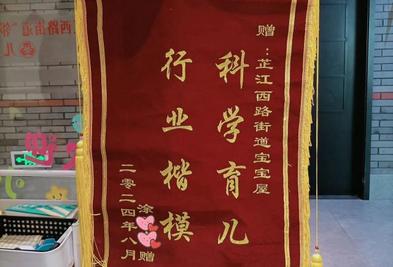 赠：芷江西路街道宝宝屋
科学育儿
行业楷模
涂
赠
二零二四年八月